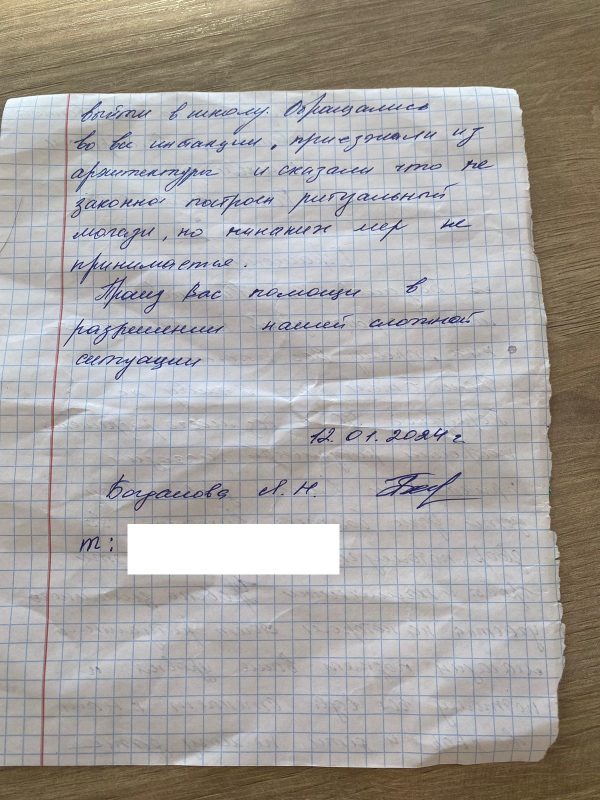 выйти в школу. Обращались
во все инстанции, приезжали из
архитектуры и сказали что не
законно построен ритуальный
магази, но никаких мер не
принимается.
Прошу Вас помощи в
разрешении нашей сложной
ситуации
12.01.2024 г.
Богданова Л.Н.
т: